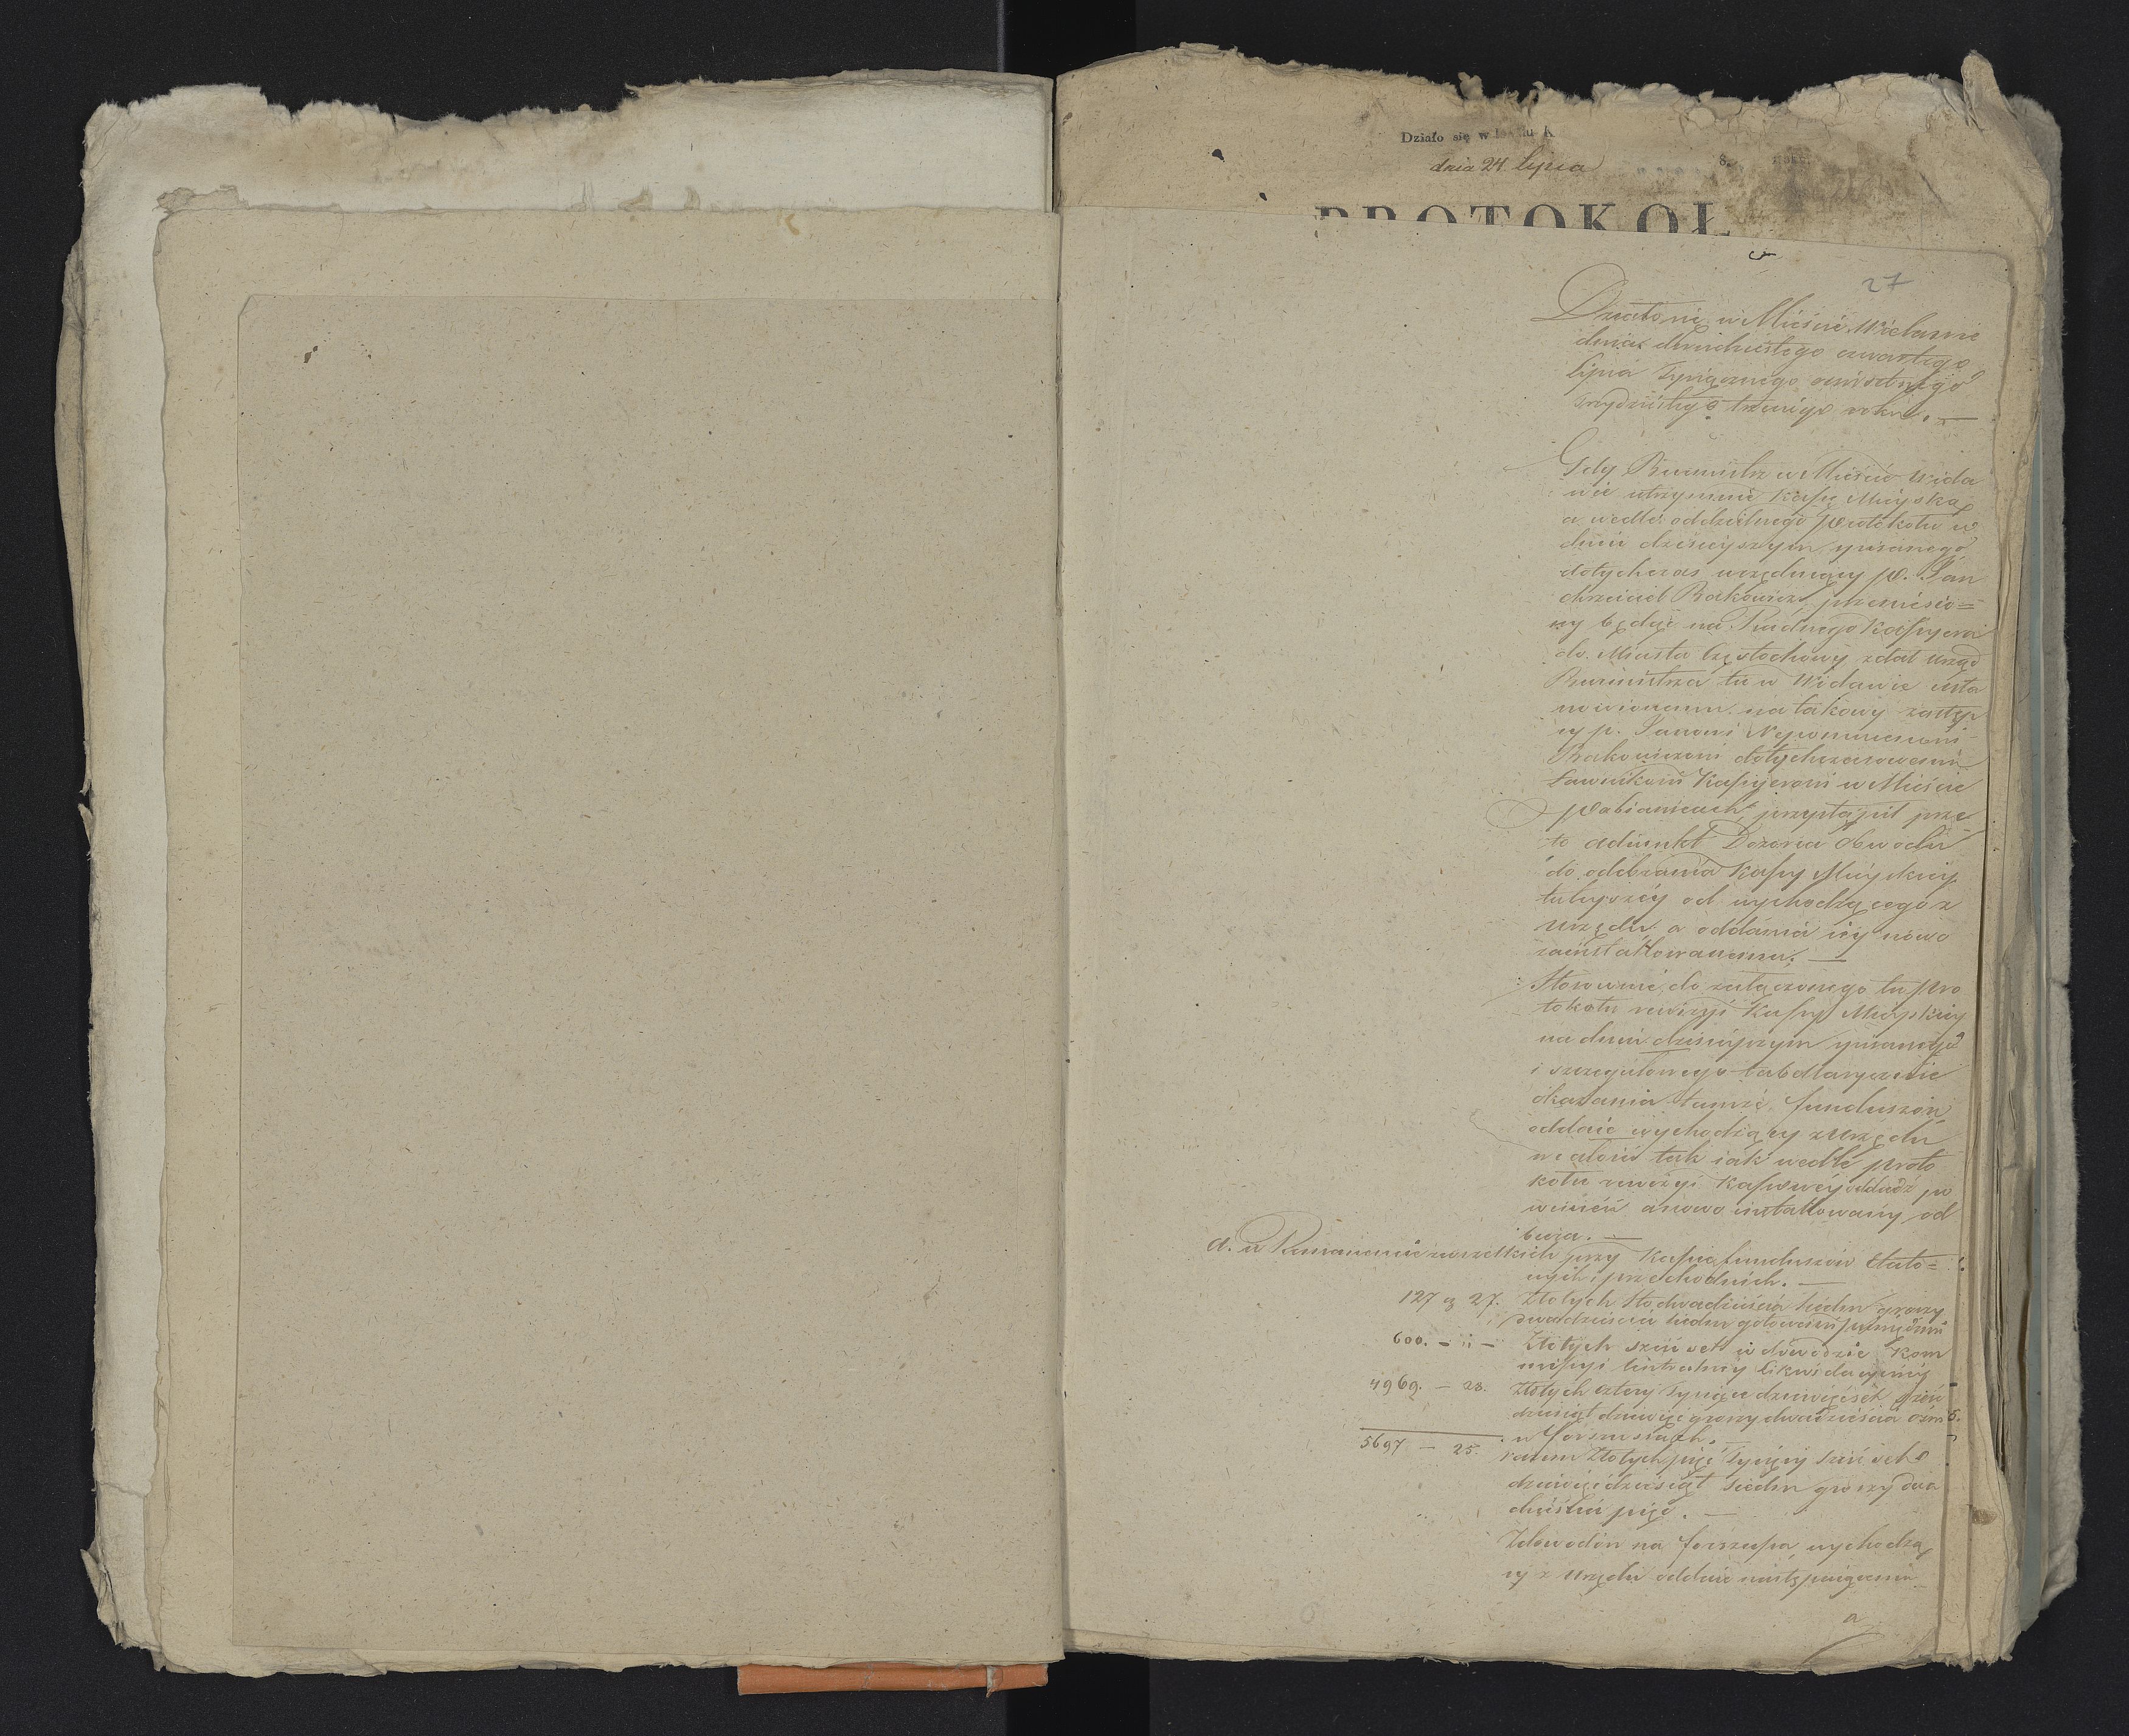 Działo się w
dnia 24 lipca
PROTOKOŁ
27
Działo się w Mieście Widawie
dnia dwudziestego czwartego
lipca tysiącznego ośmsetnego
trzydziestego trzeciego roku. —
Gdy Burmistrz w Mieście Wida
wie utrzymuie Kassę Mieyską
a wedle oddzielnego Protokołu w
dniu dzisieyszym spisanego
dotychczas urzęduiący P. Jan
Chrzciciel Rakowicz, przeniesio=
ny będąc na Radnego Kassyera
do Miasta Częstochowy zdał urząd
Burmistrza tu w Widawie usta
nowionemu na takowy zastęp
cy p. Janowi Nepomucenowi
Rakowiczowi dotychczasowemu
Ławnikowi Kassyerowi w Mieście
Pabianicach, przystąpił prze
to adiunkt Dozorca Obwodu
do odebrania Kassy Mieyskiey
tuteyszéy od wychodzącego z
urzędu a oddania iéy nowo
zainstallowanemu. —
Stosownie do załączonego tu pro
tokołu rewizyi Kassy Mieyskiey
na dniu dzisieyszym spisanego
i szczegółowego tabellarycznie
okazania tamże funduszów
oddaie wychodzący z urzędu
w całości tak iak wedle proto
kołu rewizyi Kassowéy oddać po
winien a nowo installowany od
biera. —
a. w Remanencie wszelkich przy Kassie funduszów Etato=
wych i przechodnich. —
127 g 27. Złotych Sto dwadzieścia siedm groszy
dwadzieścia siedm gotowemi pieniędzmi
600. — „ — Złotych sześćset w dowodzie Kom
missyi Centralney Likwidacyiney
4969. — 28. Złotych cztery tysiące dziewięćset sześć
dziesiąt dziewięć groszy dwadzieścia ośm
w forszusach.
5697 — 25. razem Złotych pięć tysięcy sześćset
dziewięćdziesiąt siedm groszy dwa
dzieścia pięć. —
Z dowodów na forszussa wychodzą
cy z Urzędu oddaie następuiące
a